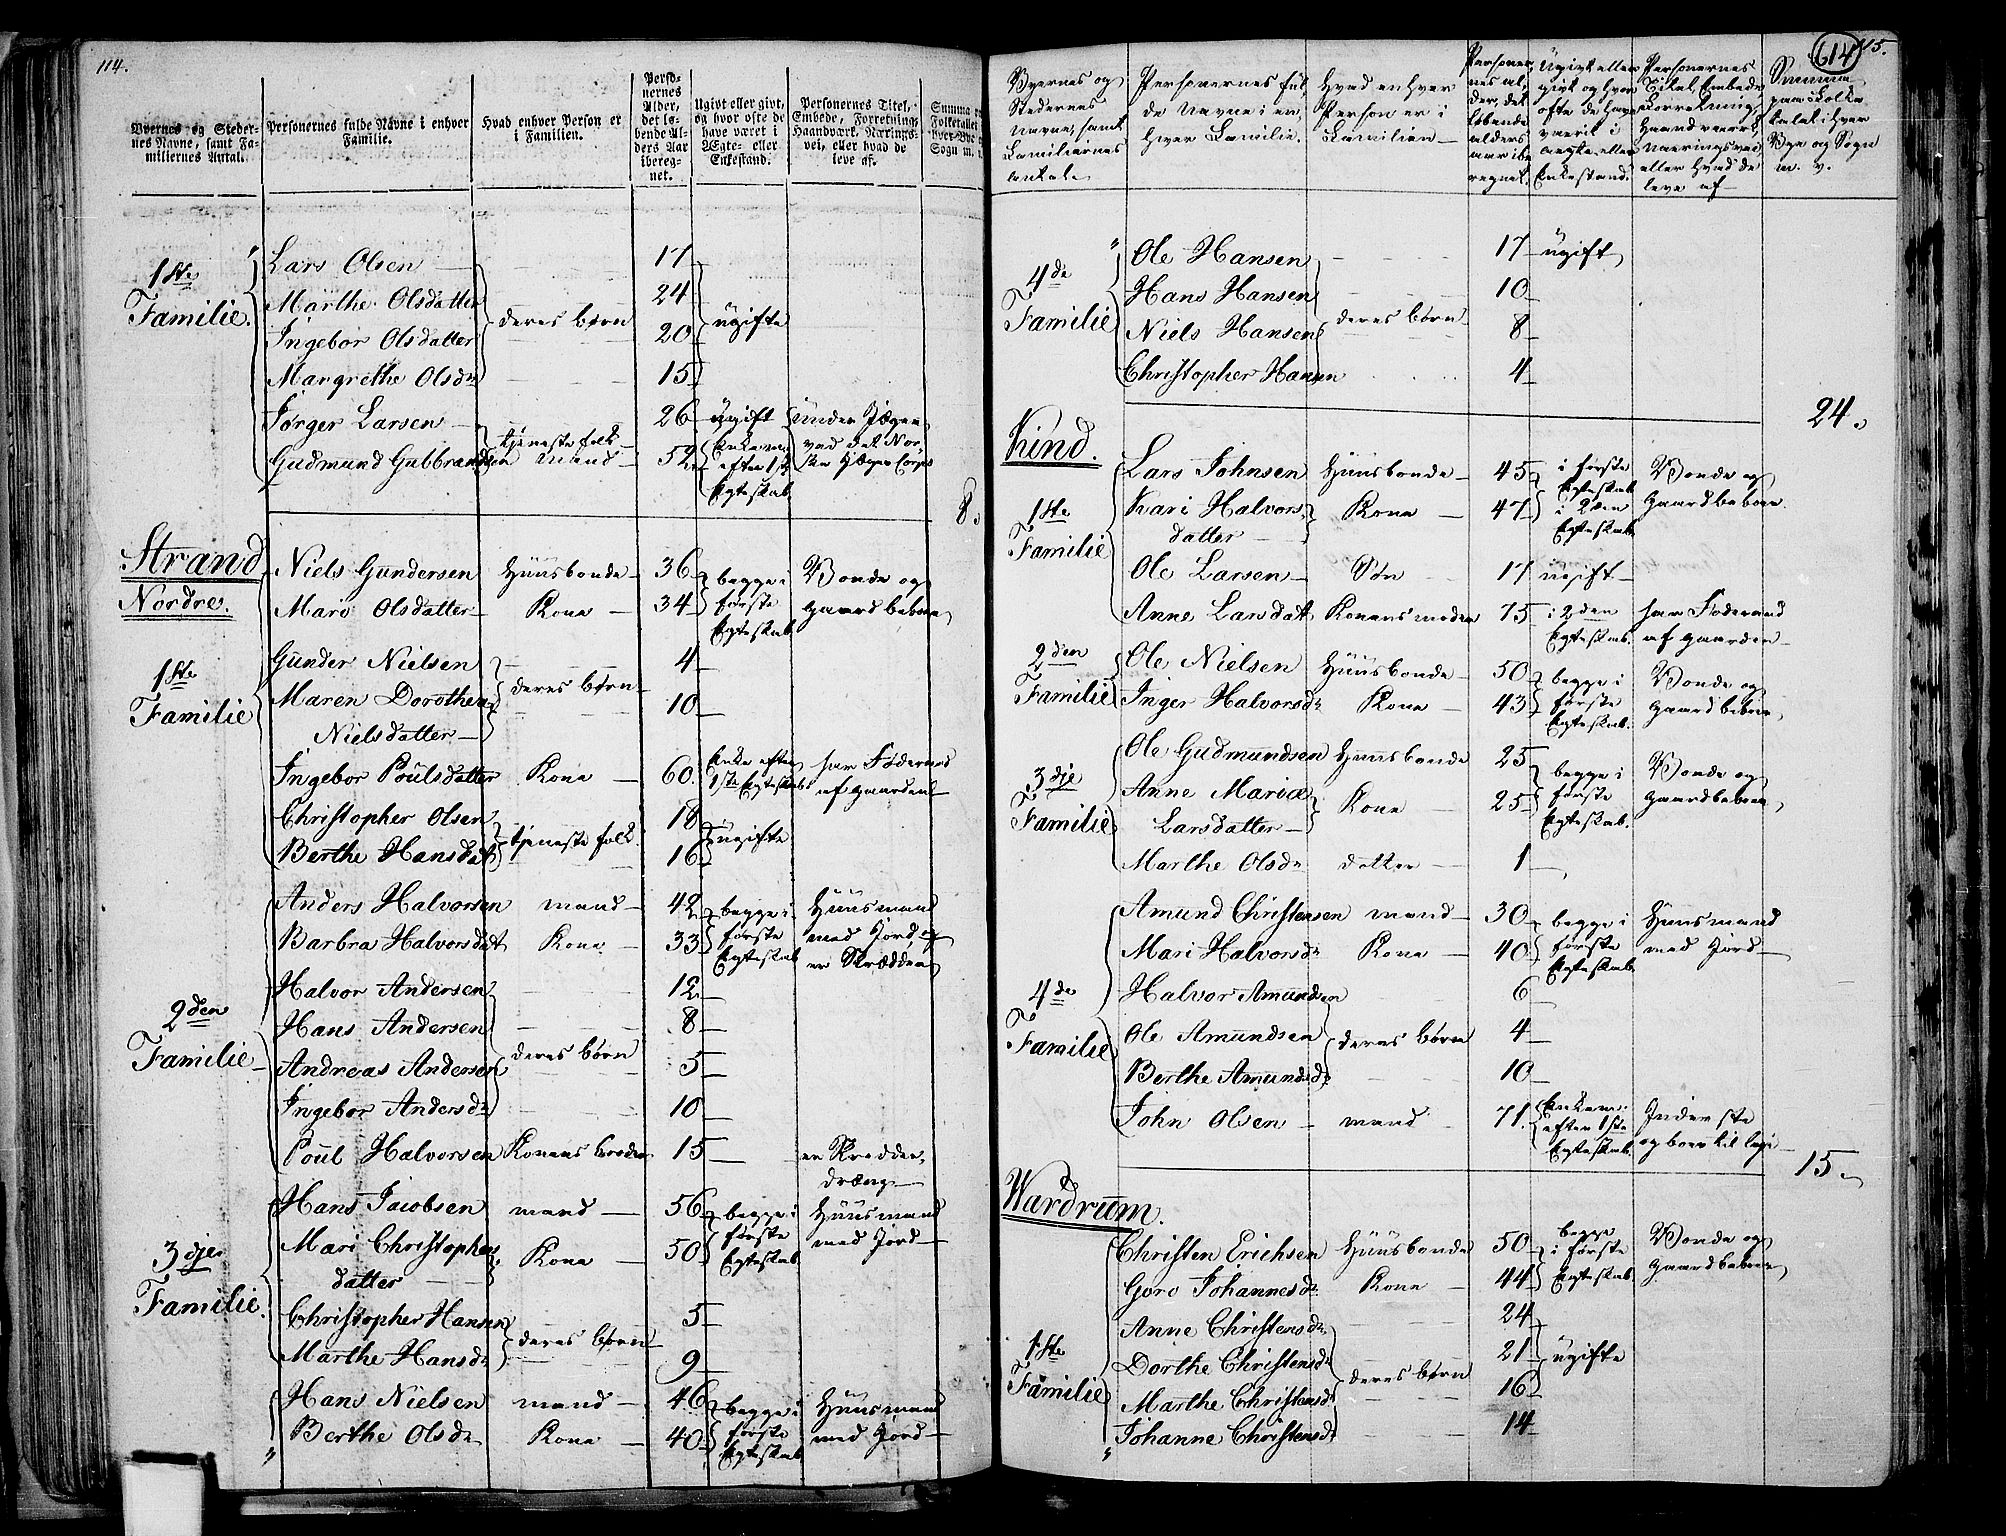 114.
Byernes og Steder-
nes Navne, samt Fa-
miliernes Antal.
Personernes fulde Navne i enhver
Familie.
Hvad enhver Person er
i Familien.
Perso-
nernes
Alder,
det lø-
bende Al-
ders Aar
ibereg-
net.
Ugivt eller givt,
og hvor ofte de
have været i
Ægte- eller
Enkestand.
Personernes Titel,
Embede, Forretning,
Haandværk, Nærings-
vei, eller hvad de
leve af.
1ste
Familie.
Lars Olsen 17
Marthe Olsdatter 24
deres børn ugifte
Ingebor Olsdatter 20
Margrethe Olsdr 15
Jørger Larsen tjeneste folk 26 ugift under Jæger
Gudmund Gulbrandsen mand 52 Enkem: ved det Nor-
efter 1ste ske Jæger Corps
Egteskab
8.
Strand
Nordre.
1ste
Familie
Niels Gundersen Huusbonde 36 begge i Bonde og
Mari Olsdatter Kone 34 første gaardbeboer
Egteskab
Gunder Nielsen 4
deres børn
Maren Dorothea 10
Nielsdatter
Ingebor Poulsdatter Kone 60 Enke efter har Føderaad
1ste Egteskab af gaarden
Christopher Olsen 18
tjeneste folk ugifte
Berthe Hansdat 16
2den
Familie
Anders Halvorsen mand 42 begge i Huusmand
Barbra Halvorsdat Kone 33 første med Jord, og
Egteskab er Skrædder
Halvor Andersen 12
Hans Andersen 8
deres børn
Andreas Andersen 5
Ingebor Andersdr 10
Poul Halvorsen Konens broder 15 er Skredder-
dræng
3dje
Familie.
Hans Jacobsen mand 56 begge i Huusmand
Mari Christophers Kone 50 første med Jord
datter Egteskab
Christopher Hansen 5
deres børn
Marthe Hansdr 9
Hans Nielsen mand 46 begge i Huusmand
Berthe Olsdr Kone 40 første med Jord
Egteskab
614
115.
Byernes og
Stedernes
Navne, samt
Familiernes
antal.
Personernes ful-
de Navne i en-
hver Familie.
Hvad enhver
Person er i
Familien
Personer-
nes al-
der, det
løbende
alders
aar ibe-
regnet.
Ugivt eller
givt og hvor
ofte de have
værit i
ægte eller
Enkestand.
Personernes
Titel, Embede
Forretning,
Haandværk,
Næringsvei
eller hvad de
leve af
Summa
paa Folke
talet i hver
Bye og Sogn
m. v.
4de
Familie
Ole Hansen 17 ugift
Hans Hansen 10
deres børn
Niels Hansen 8
Christopher Hansen 4
24.
Kind.
1ste
Familie
Lars Johnsen Huusbonde 45 i første Bonde og
Egteskab gaardbeboer.
Kari Halvors- Kone 47 i 2den
datter Egteskab
Ole Larsen Søn 17 ugift
Anne Larsdat Konens moder 75 i 2den har Føderaad
Egteskab. af gaarden
2den
Familie
Ole Nielsen Huusbonde 50 begge i Bonde og
Inger Halvorsdr Kone 43 første gaardbeboer
Egteskab.
3dje
Familie
Ole Gudmundsen Huusbonde 25 begge i Bonde og
Anne Maria Kone 25 første gaardbeboer
Larsdatter Egteskab.
Marthe Olsdr datter 1
4de
Familie
Amund Christensen mand 30 begge i Huusmand
Mari Halvorsdr Kone 40 første med Jord
Egteskab
Halvor Amundsen 6
Ole Amundsen deres børn 4
Berthe Amundsdr 10
John Olsen mand 71. Enkem: Inderste
efter 1ste og boer til leje
Egteskab
15.
Wardrum.
1ste
Familie
Christen Erichsen Huusbonde 50 begge Bonde og
i første gaardbeboer
Goro Johannesdr Kone 44 Egteskab
Anne Christensdr 24
Dorthe Christensdr 21 ugifte
deres børn
Marthe Christensdr 16
Johanne Christensdr 14